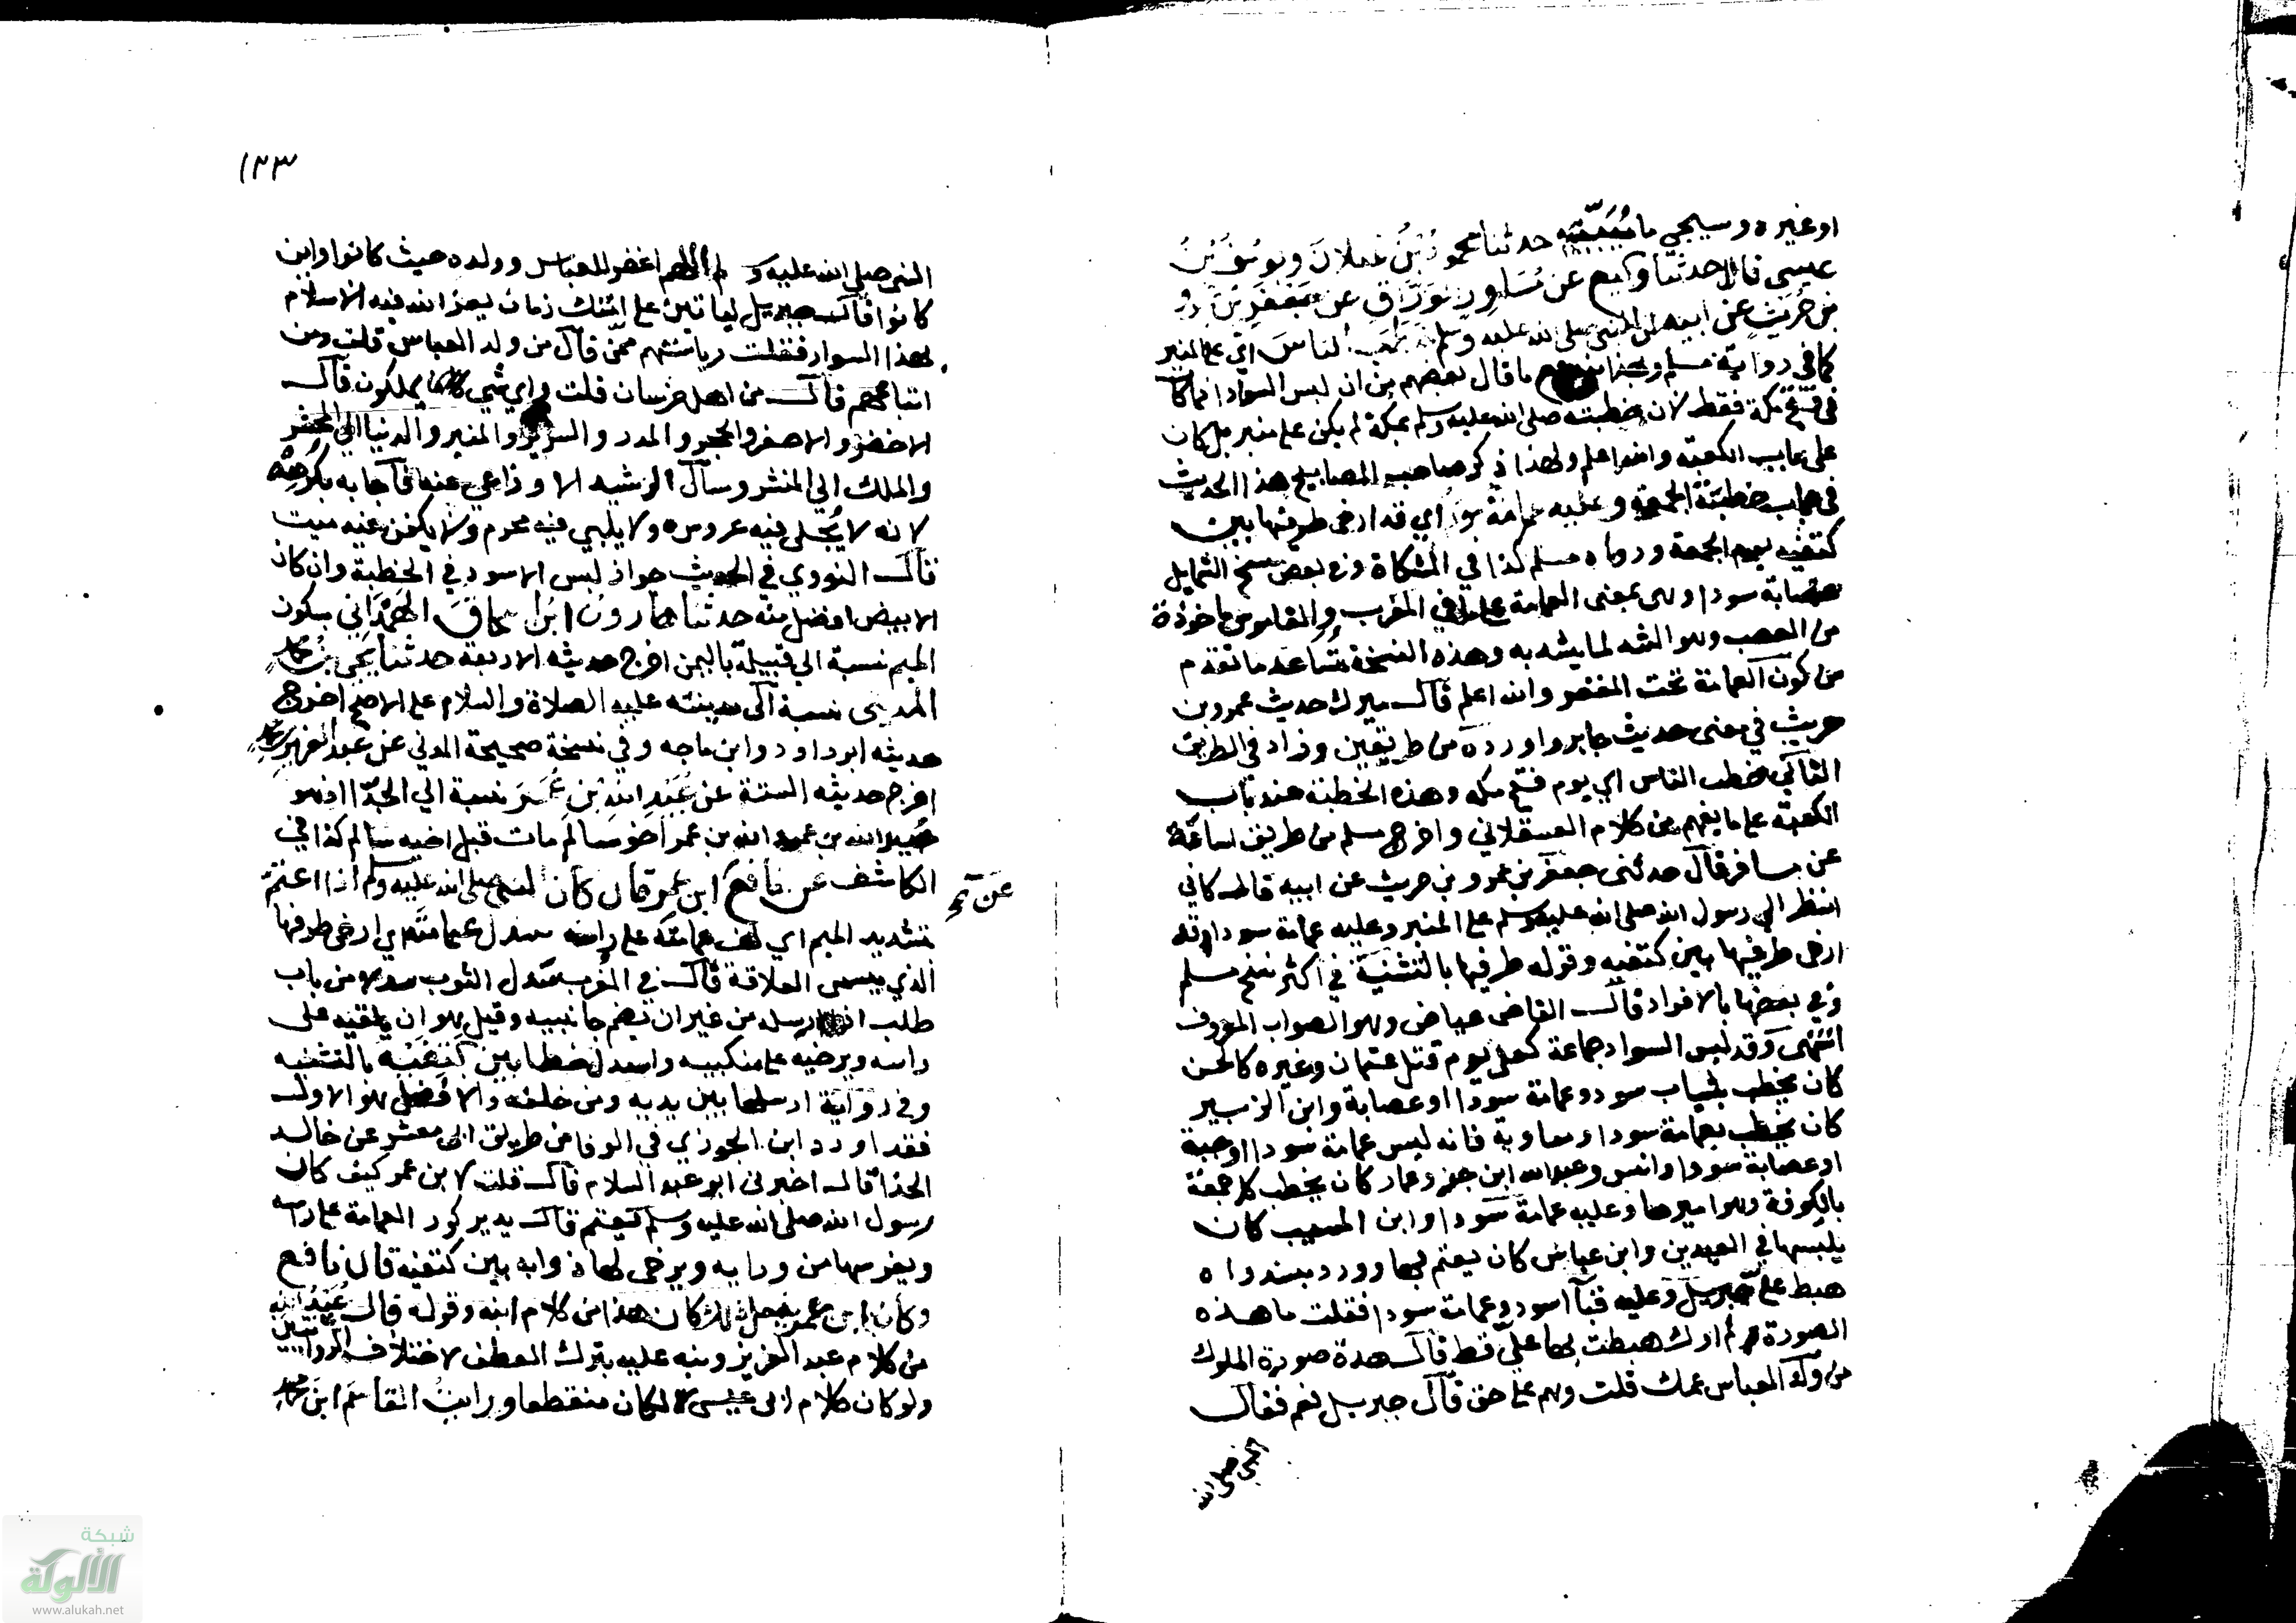 او غيره وسيجي ما يبينه حدثنا محمود بن غيلان ويوسف بن
عيسى قالا حدثنا وكيع عن مساور الوراق عن جعفر بن عمرو
بن حريث عن ابيه ان النبي صلى الله عليه وسلم خطب الناس اي على المنبر
كما في رواية مسلم ما قال بعضهم من ان لبس السواد انما كان
في فتح مكة فقط لان خطبته صلى الله عليه وسلم بمكة لم يكن على منبر بل كان
على باب الكعبة والله اعلم ولهذا ذكر صاحب المصابيح هذا الحديث
في باب خطبة الجمعة وعليه عمامة سودا اي قد ارخى طرفها بين
كتفيه يوم الجمعة ورواه مسلم كذا في المشكاة وفي بعض نسخ الشمايل
عصابة سودا وهي بمعنى العمامة على ما في المغرب والقاموس ماخوذة
من العصب وهو الشد لما يشد به وهذه النسخة تساعد ما تقدم
من كون العمامة تحت المغفر والله اعلم قال ميرك حديث عمرو بن
حريث في معنى حديث جابر واورده من طريقين وزاد في الطريق
الثاني خطب الناس اي يوم فتح مكه وهذه الخطبة عند باب
الكعبة على ما يفهم من كلام العسقلاني واخرج مسلم من طريق اسامة
عن مسافر قال حدثني جعفر بن عمرو بن حريث عن ابيه قال كاني
انظر الى رسول الله صلى الله عليه وسلم على المنبر وعليه عمامة سودا وقد
ارخى طرفيها بين كتفيه وقوله طرفيها بالتثنية في اكثر نسخ مسلم
وفي بعضها بالافراد قال القاضي عياض وهو الصواب المعروف
انتهى وقد لبس السواد جماعة كعلي يوم قتل عثمان وغيره كالحسن
كان يخطب بثياب سود وعمامة سودا او عصابة وابن الزبير
كان يخطب بعمامة سودا ومعاوية فانه لبس عمامة سودا او جبة
او عصابة سودا وانس وعبد الله ابن جزء وعمار كان يخطب كل جمعة
بالكوفة وهو اميرها وعليه عمامة سودا وابن المسيب كان
يلبسها في العيدين وابن عباس كان يعتم بها وورد بسند واه
هبط علي جبريل وعليه قبآ اسود وعمامة سودا فقلت ما هذه
الصورة لم ارك هبطت بها علي قط قال هذة صورة الملوك
من ولد العباس عمك قلت وهم على حق قال جبريل نعم فقال
النبي صلى الله
١٣٣
النبي صلى الله عليه وسلم اللهم اغفر للعباس وولده حيث كانوا واين
كانوا قال جبريل لياتين على امتك زمان يعز الله فيه الاسلام
بهذا السواد فقلت رياستهم ممن قال من ولد العباس قلت ومن
اتباعهم قال من اهل خرسان قلت واي شي يملكون قال
الاخضر والاصفر والحجر والمدر والسرير والمنبر والدنيا الى المحشر
والملك الى المنشر وسأل الرشيد الاوزاعي عنه فاجابه بكرهه
لانه لا يجلى فيه عروس ولا يلبي فيه محرم ولا يكفن فيه ميت
قال النووي في الحديث جواز لبس الاسود في الخطبة وان كان
الابيض افضل منه حدثنا هارون ابن اسحاق الهمداني بسكون
الميم نسبة الى قبيلة باليمن اخرج حديثه الاربعة حدثنا يحيى بن محمد
المديني نسبة الى مدينته عليه الصلاة والسلام على الاصح اخرج
حديثه ابو داود وابن ماجه وفي نسخة صحيحة المدني عن عبد العزيز بن محمد
اخرج حديثه الستة عن عبيد الله بن عمر نسبة الى الجد اذ هو
عبيد الله بن عبد الله بن عمر اخو سالم مات قبل اخيه سالم كذا في
الكاشف عن نافع ابن عمر قال كان النبي صلى الله عليه وسلم اذا اعتم
عن
بتشديد الميم اي لف عمامته على راسه سدل عمامته اي ارخى طرفها
الذي يسمى العلاقة قال في المغرب سدل الثوب سدلا من باب
طلب اذا ارسله من غير ان يضم جانبيه وقيل هو ان يلقيه على
راسه ويرخيه على منكبيه واسدل خطا بين كتفيه بالتثنيه
وفي رواية ارسلها بين يديه ومن خلفه والافضل هو الاول
فقد اورد ابن الجوزي في الوفا من طريق ابي معشر عن خالد
الحذا قال اخبرني ابو عبد السلام قال قلت لابن عمر كيف كان
رسول الله صلى الله عليه وسلم يعتم قال يدير كور العمامة على راسه
ويغرسها من ورايه ويرخي لها ذوابه بين كتفيه قال نافع
وكان ابن عمر يفعل ذلك كان هذا من كلام ابنه وقوله قال عبيد الله
من كلام عبد العزيز ونبه عليه بترك العطف لاختلاف الروايتين
ولو كان كلام ابي عيسى لكان منقطعا ورايت القاسم ابن محمد